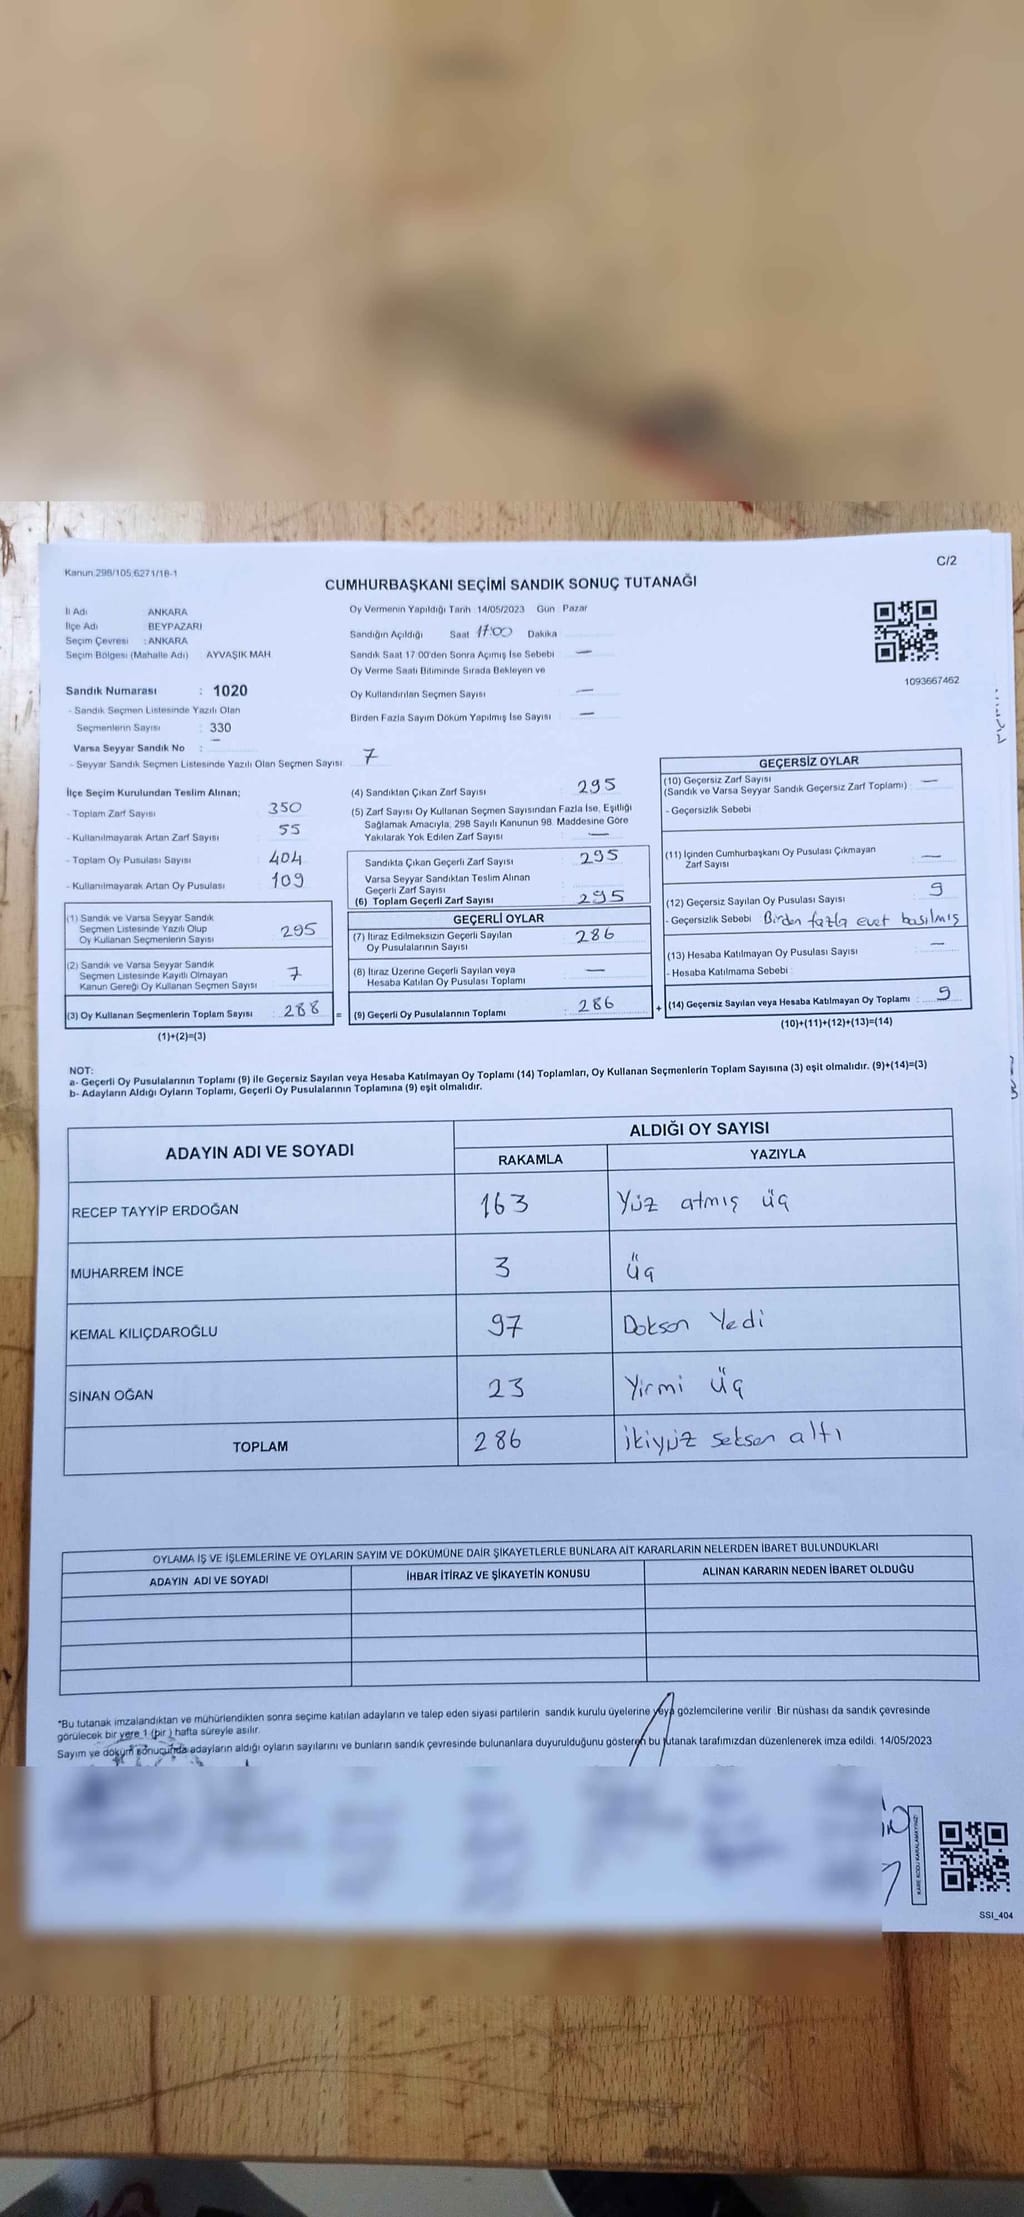 Kanun:298/105,6271/18-1
C/2
CUMHURBAŞKANI SEÇİMİ SANDIK SONUÇ TUTANAĞI
İl Adı ANKARA
İlçe Adı BEYPAZARI
Seçim Çevresi : ANKARA
Seçim Bölgesi (Mahalle Adı) AYVAŞIK MAH.
Sandık Numarası : 1020
- Sandık Seçmen Listesinde Yazılı Olan
Seçmenlerin Sayısı : 330
Varsa Seyyar Sandık No : —
- Seyyar Sandık Seçmen Listesinde Yazılı Olan Seçmen Sayısı 7
Oy Vermenin Yapıldığı Tarih 14/05/2023 Gün Pazar
Sandığın Açıldığı Saat 17:00 Dakika
Sandık Saat 17.00'den Sonra Açımış İse Sebebi —
Oy Verme Saati Bitiminde Sırada Bekleyen ve
Oy Kullandırılan Seçmen Sayısı —
Birden Fazla Sayım Döküm Yapılmış İse Sayısı —
1093667462
İlçe Seçim Kurulundan Teslim Alınan;
- Toplam Zarf Sayısı 350
- Kullanılmayarak Artan Zarf Sayısı 55
- Toplam Oy Pusulası Sayısı 404
- Kullanılmayarak Artan Oy Pusulası 109
(1) Sandık ve Varsa Seyyar Sandık
Seçmen Listesinde Yazılı Olup
Oy Kullanan Seçmenlerin Sayısı 295
(2) Sandık ve Varsa Seyyar Sandık
Seçmen Listesinde Kayıtlı Olmayan
Kanun Gereği Oy Kullanan Seçmen Sayısı 7
(3) Oy Kullanan Seçmenlerin Toplam Sayısı : 288 =
(1)+(2)=(3)
(4) Sandıktan Çıkan Zarf Sayısı 295
(5) Zarf Sayısı Oy Kullanan Seçmen Sayısından Fazla İse, Eşitliği
Sağlamak Amacıyla, 298 Sayılı Kanunun 98. Maddesine Göre
Yakılarak Yok Edilen Zarf Sayısı —
Sandıkta Çıkan Geçerli Zarf Sayısı 295
Varsa Seyyar Sandıktan Teslim Alınan
Geçerli Zarf Sayısı
(6) Toplam Geçerli Zarf Sayısı 295
GEÇERLİ OYLAR
(7) İtiraz Edilmeksizin Geçerli Sayılan
Oy Pusulalarının Sayısı 286
(8) İtiraz Üzerine Geçerli Sayılan veya
Hesaba Katılan Oy Pusulası Toplamı —
(9) Geçerli Oy Pusulalarının Toplamı : 286 +
GEÇERSİZ OYLAR
(10) Geçersiz Zarf Sayısı
(Sandık ve Varsa Seyyar Sandık Geçersiz Zarf Toplamı) : —
- Geçersizlik Sebebi
(11) İçinden Cumhurbaşkanı Oy Pusulası Çıkmayan
Zarf Sayısı —
(12) Geçersiz Sayılan Oy Pusulası Sayısı 9
- Geçersizlik Sebebi Birden fazla evet basılmış
(13) Hesaba Katılmayan Oy Pusulası Sayısı —
- Hesaba Katılmama Sebebi :
(14) Geçersiz Sayılan veya Hesaba Katılmayan Oy Toplamı : 9
(10)+(11)+(12)+(13)=(14)
NOT:
a- Geçerli Oy Pusulalarının Toplamı (9) ile Geçersiz Sayılan veya Hesaba Katılmayan Oy Toplamı (14) Toplamları, Oy Kullanan Seçmenlerin Toplam Sayısına (3) eşit olmalıdır. (9)+(14)=(3)
b- Adayların Aldığı Oyların Toplamı, Geçerli Oy Pusulalarının Toplamına (9) eşit olmalıdır.
ADAYIN ADI VE SOYADI ALDIĞI OY SAYISI
RAKAMLA YAZIYLA
RECEP TAYYİP ERDOĞAN 163 Yüz atmış üç
MUHARREM İNCE 3 üç
KEMAL KILIÇDAROĞLU 97 Doksan Yedi
SİNAN OĞAN 23 Yirmi Üç
TOPLAM 286 ikiyüz seksen altı
OYLAMA İŞ VE İŞLEMLERİNE VE OYLARIN SAYIM VE DÖKÜMÜNE DAİR ŞİKAYETLERLE BUNLARA AİT KARARLARIN NELERDEN İBARET BULUNDUKLARI
ADAYIN ADI VE SOYADI İHBAR İTİRAZ VE ŞİKAYETİN KONUSU ALINAN KARARIN NEDEN İBARET OLDUĞU
*Bu tutanak imzalandıktan ve mühürlendikten sonra seçime katılan adayların ve talep eden siyasi partilerin sandık kurulu üyelerine veya gözlemcilerine verilir. Bir nüshası da sandık çevresinde
görülecek bir yere 1 (bir ) hafta süreyle asılır.
Sayım ve döküm sonucunda adayların aldığı oyların sayılarını ve bunların sandık çevresinde bulunanlara duyurulduğunu gösteren bu tutanak tarafımızdan düzenlenerek imza edildi. 14/05/2023
KARE KODU KARALAMAYINIZ!
SSI_404